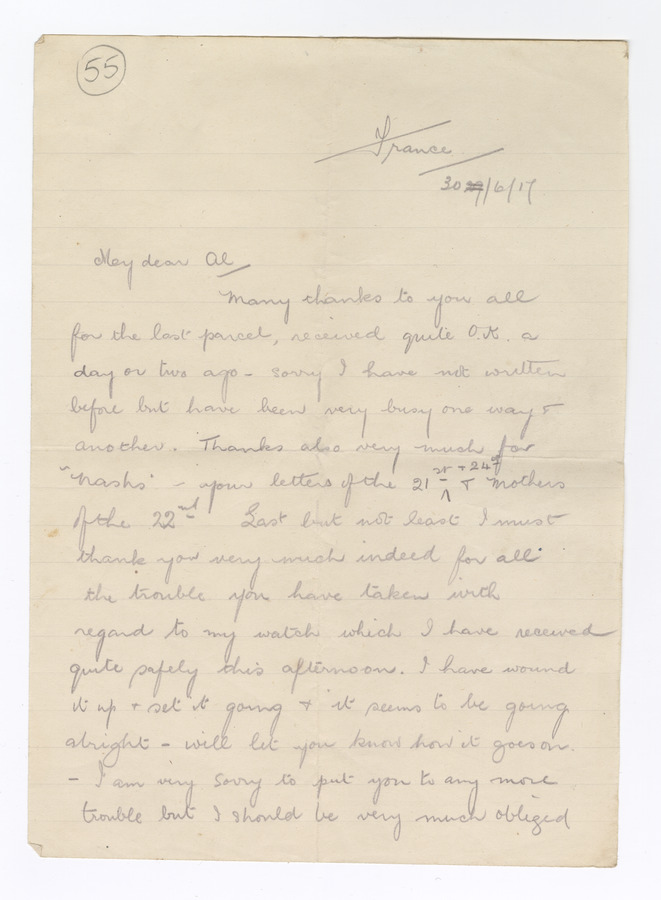 55
France
30/6/17
My dear Al
Many thanks to you all
for the last parcel, received quite O.K. a
day or two ago - sorry I have not written
before but have been very busy one way &
another. Thanks also very much for
"Nashs" - your letters of the 21st + 24th & Mothers
of the 22nd Last but not least I must
thank you very much indeed for all
the trouble you have taken with
regard to my watch which I have received
quite safely this afternoon. I have wound
it up + set it going + it seems to be going
alright - will let you know how it goes on.
- I am very sorry to put you to any more
trouble but I should be very much obliged